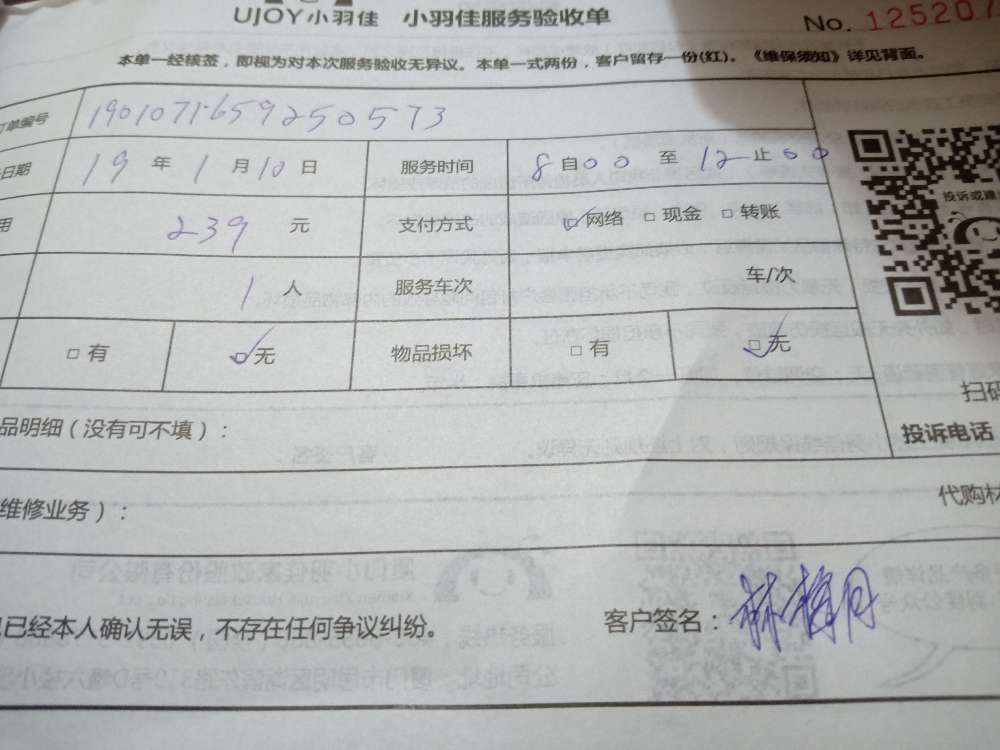 UJOY小羽佳 小羽佳服务验收单
No. 125207
本单一经核签，即视为对本次服务验收无异议。本单一式两份，客户留存一份(红)。《维保须知》详见背面。
订单编号 190107165925057​3
日期 19 年 1 月 10 日 服务时间 8 自 00 至 12 止 00
用 239 元 支付方式 网络 现金 转账
投诉或建
1 人 服务车次 车/次
有 无 物品损坏 有 无
扫码
品明细（没有可不填）：
投诉电话
维修业务）：
代购材
已经本人确认无误，不存在任何争议纠纷。
客户签名：林梅月